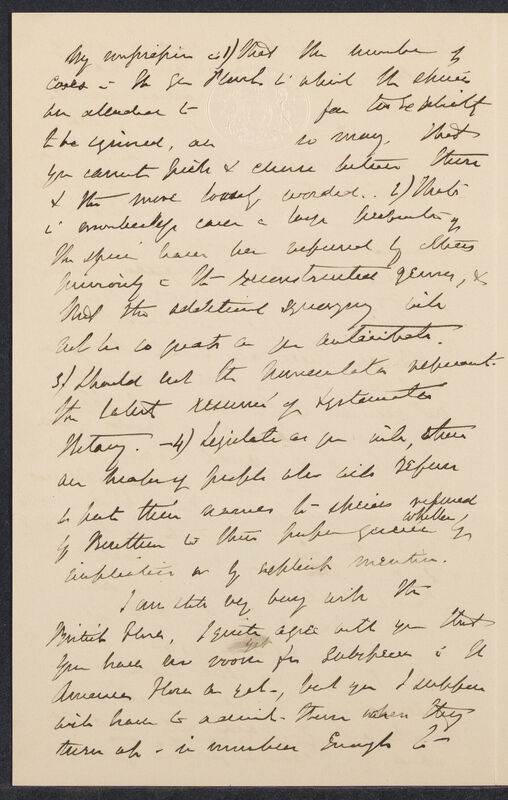 My impression is 1) that the number of
cases in the Gen. Plant. in which the species
are attended to far too explicitly
to be ignored, are so many, that
you cannot pick & choose between them
& the more loosely worded.. 2) That
in innumerable cases a large proportion of
the species have been referred by others
previously to the reconstructed genus, &
that the additional synonymy will
not be so great as you anticipate.
3) Should not the nomenclator represent
the latest resumé of systematic
Botany. — 4) Legislate as you will, there
are heaps of people who will refuse
to put their names to species referred
by Bentham to their proper genera whether by
implication or by explicit mention.
I am still very busy with the
British Flora, I quite agree with you that
you have no room for subspecies in the
American Flora as yet, but you I suppose
will have to admit them when they
turn up in numbers enough to